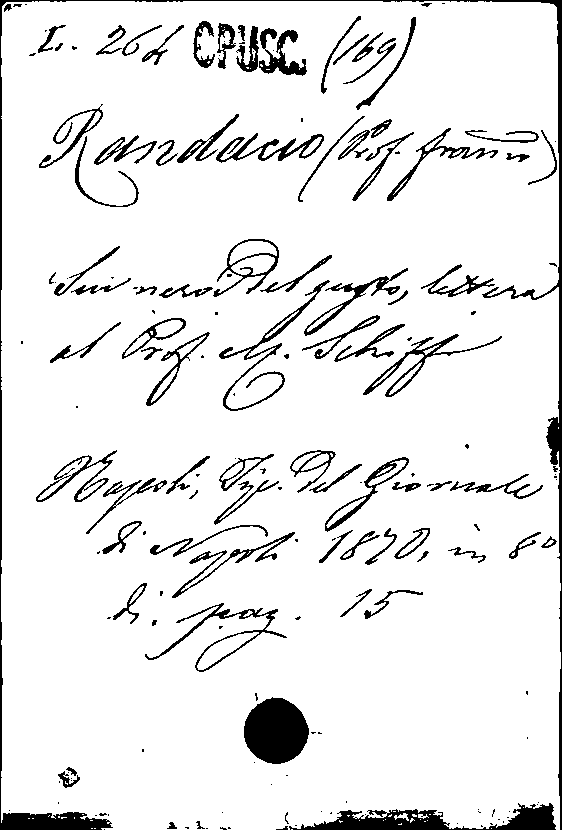 L. 264 OPUSC. (169)
Randacio (Prof. Franco)
Sui nervi del gusto, lettera
al Prof. M. Schiff
Napoli, Tip. del Giornale
di Napoli 1870, in 8º
di pag. 15